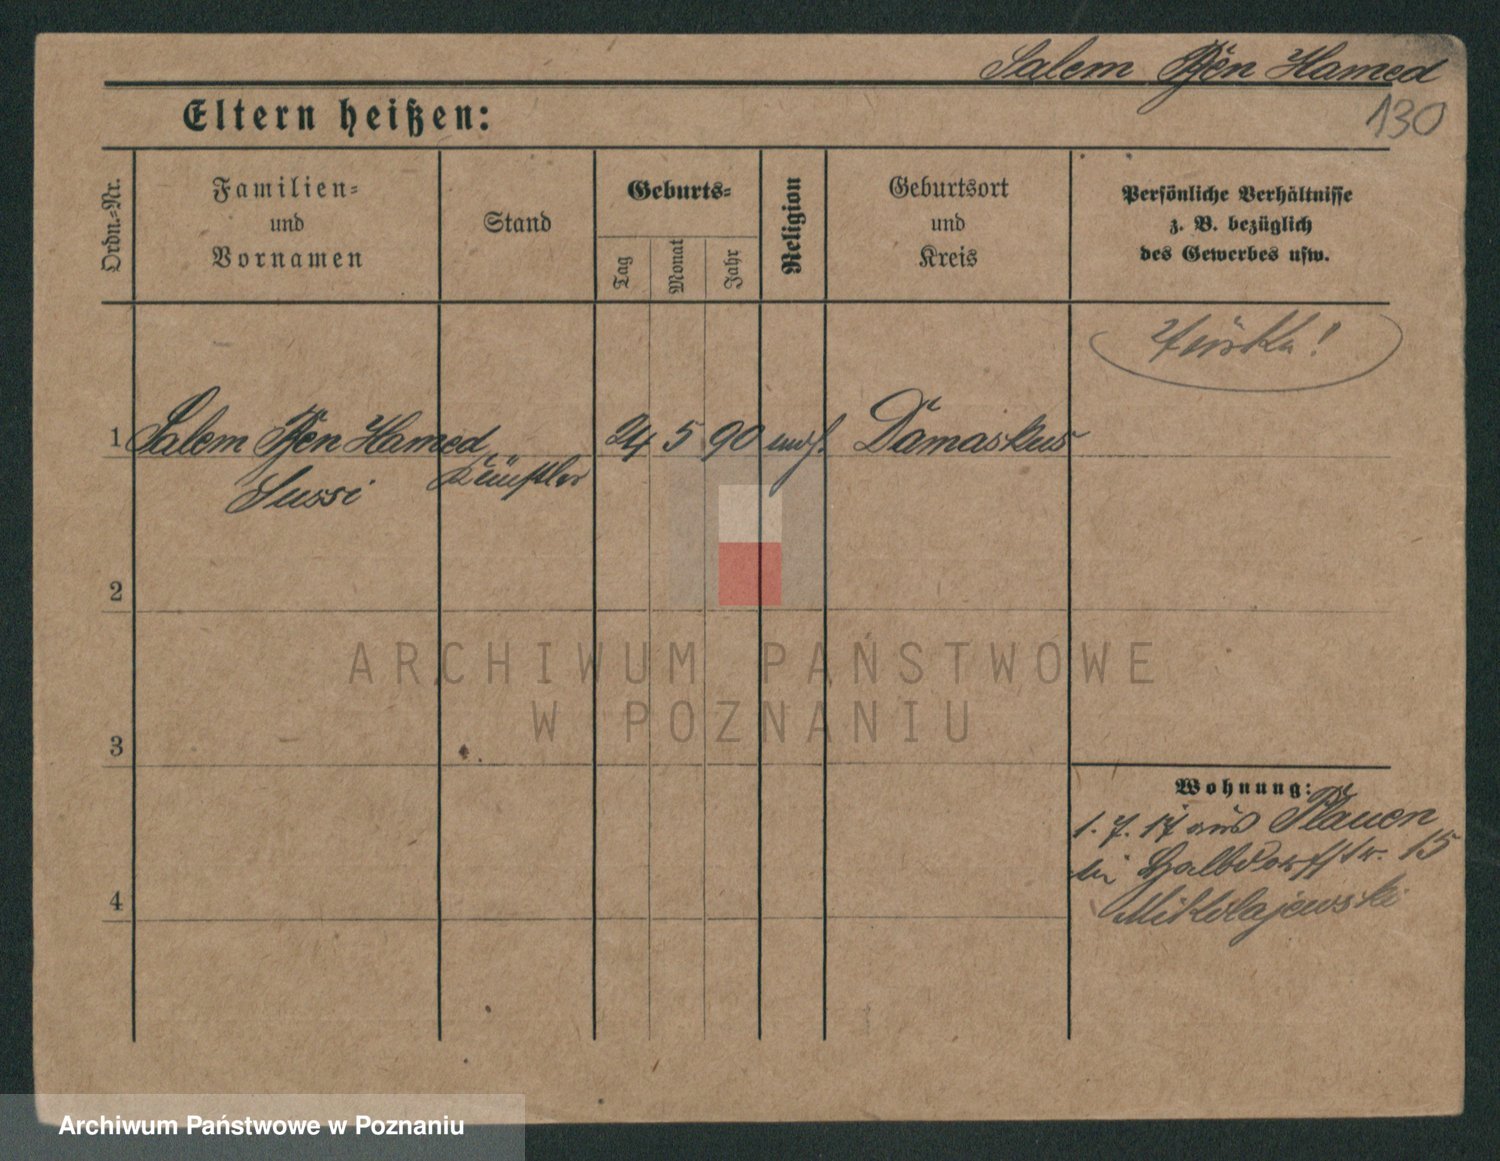 Salem Ben Hamed
130
Eltern heißen:
Ordn.-Nr.
Familien-
und
Vornamen
Stand
Geburts-
Tag
Monat
Jahr
Religion
Geburtsort
und
Kreis
Persönliche Verhältnisse
z. B. bezüglich
des Gewerbes usw.
1 Salem Ben Hamed 24 5 90 Damaskus
Sussi Künstler
2
3
4
Wohnung:
1. 7. 17 aus Plauen
bei Halbdorffstr. 15
Mikolajewski
ARCHIWUM PAŃSTWOWE
W POZNANIU
Archiwum Państwowe w Poznaniu